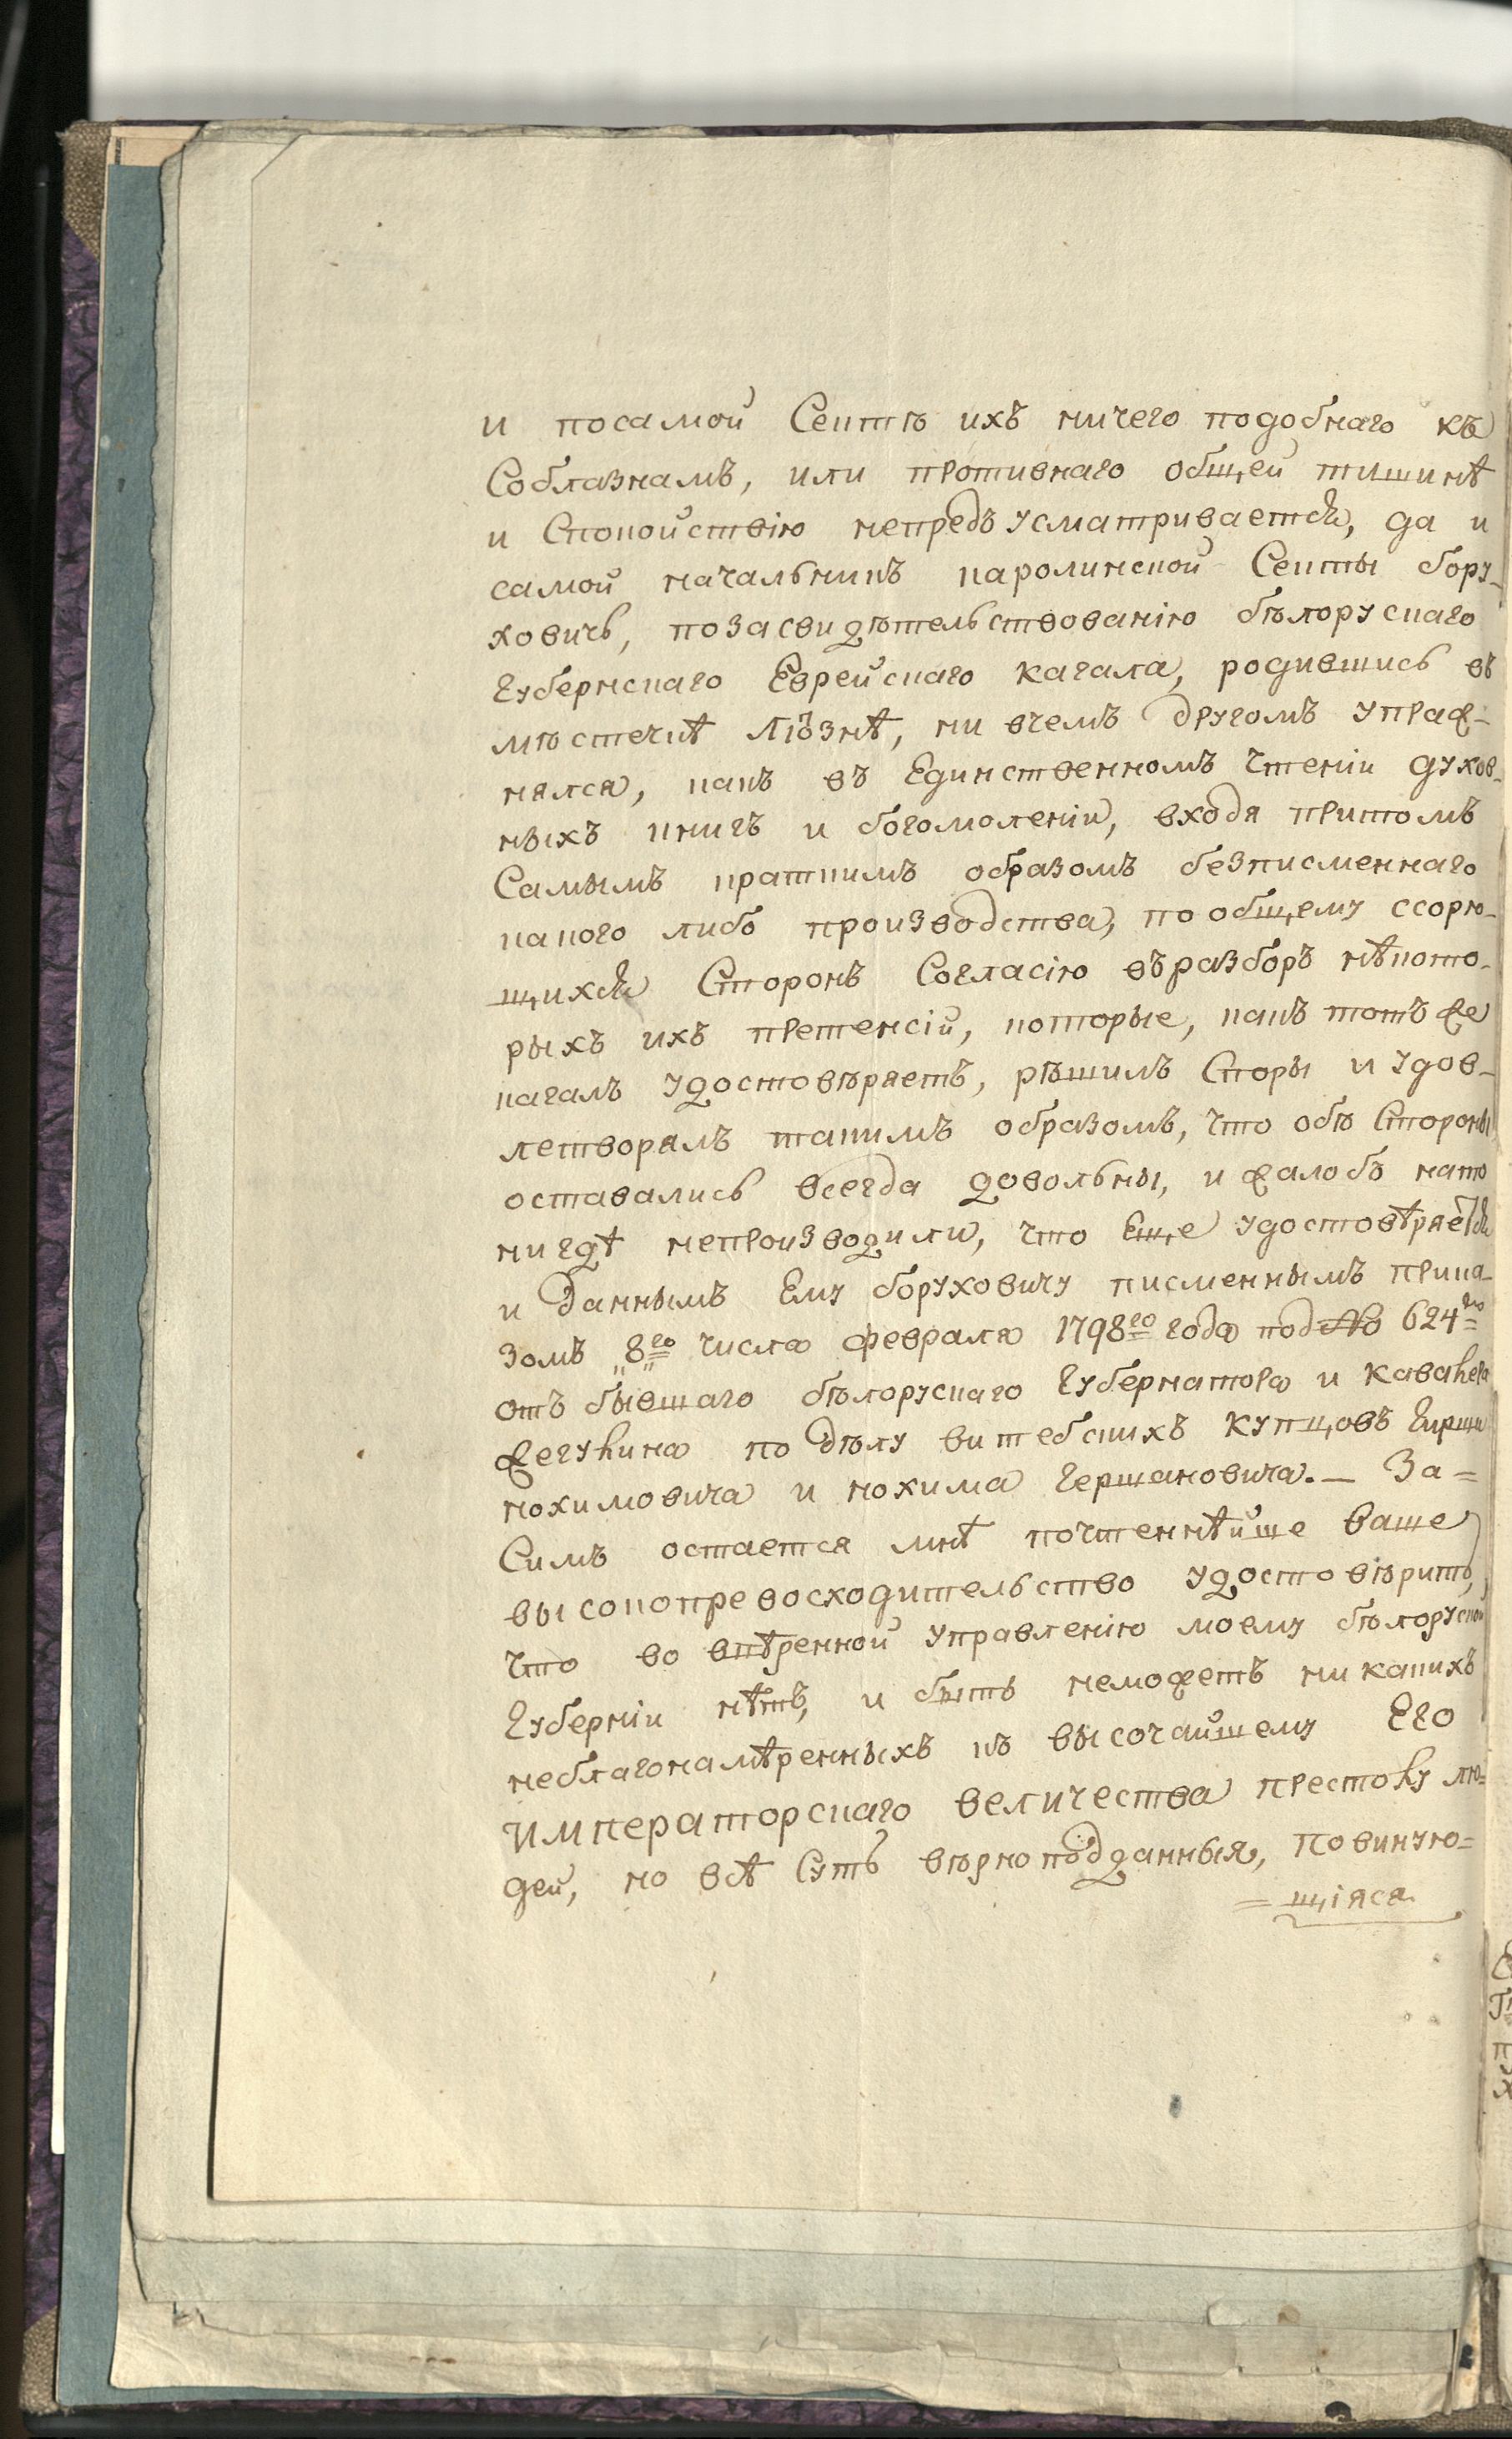 и посамой Сектѣ ихъ ничего подобнаго къ
Соблазнамъ, или противнаго общей тишинѣ
и Спокойствію непредъусматривается, да и
самой начальникъ каролинской Секты бору-
ховичь, позасвидѣтельствованію бѣлорускаго
Губернскаго Еврейскаго кагала, родившись въ
мѣстечкѣ Лiознѣ, ни вчемъ другомъ упраж-
нялся, какъ въ Единственномъ Чтеніи духов-
ныхъ книгъ и богомоленіи, входя притомъ
Самымъ краткимъ образомъ безписменнаго
какого либо производства, по общему ссорю-
щихся Сторонъ Согласію въразборъ нѣкото-
рыхъ ихъ претенсій, которые, какъ тотъ же
кагалъ удостовѣряетъ, рѣшилъ Споры и удов-
летворялъ такимъ образомъ, Что обѣ Стороны
оставались всегда довольны, и жалобъ нато
нигдѣ непроизводили, Что Еще удостовѣряется
и даннымъ Ему боруховичу писменнымъ прика-
зомъ „8го„ числа февраля 1798го года под № 624мъ
отъ бывшаго бѣлорускаго Губернатора и кавалера
жегулина по дѣлу витебскихъ купцовъ Гирши
нохимовича и нохима Гершановича.— За=
Симъ остается мнѣ почтеннѣйше ваше
высокопревосходительство удостовѣрить,
Что во ввѣренной управленію моему бѣлоруской
Губерніи нѣтъ, и быть неможетъ никакихъ
неблагонамѣренныхъ къ высочайшему Его
императорскаго величества престолу лю=
дей, но всѣ Суть вѣрноподданныя, повиную=
=щіяся